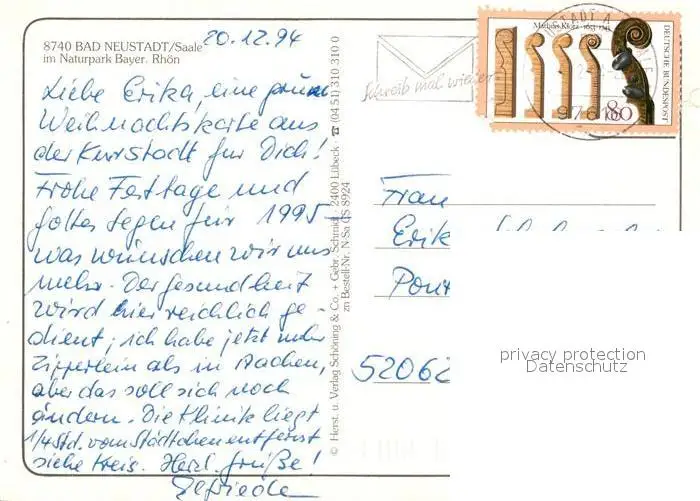 8740 BAD NEUSTADT/Saale
im Naturpark Bayer. Rhön
20.12.94
Liebe Erika, eine grüne
Weihnachtskarte aus
der Kurstadt für Dich!
Frohe Festtage und
Gottes Segen für 1995 –
was wünschen wir uns
mehr. Der Gesundheit
wird hier reichlich ge-
dient; ich habe jetzt mehr
Zipperlein als in Aachen,
aber das soll sich noch
ändern. Die Klinik liegt
1/4 Std. vom Städtchen entfernt
siehe Kreis. Herzl. Grüße!
Elfriede
© Herst. u. Verlag Schöning & Co. + Gebr. Schmidt, 2400 Lübeck · ☎ (04 51) 310 310 0
zu Bestell-Nr. N Sa GS 8924
Schreib mal wieder
Mathias Klotz · 1653-1743
DEUTSCHE BUNDESPOST
80
97616
Frau
Erik
Pont
52062
privacy protection
Datenschutz